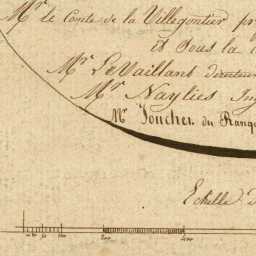 Mr. le Comte de la Villegontier pr
et sous la
Mr. LeVaillant directeur
Mr. Naylies In
Mr. Joucher du Rang
Echelle d